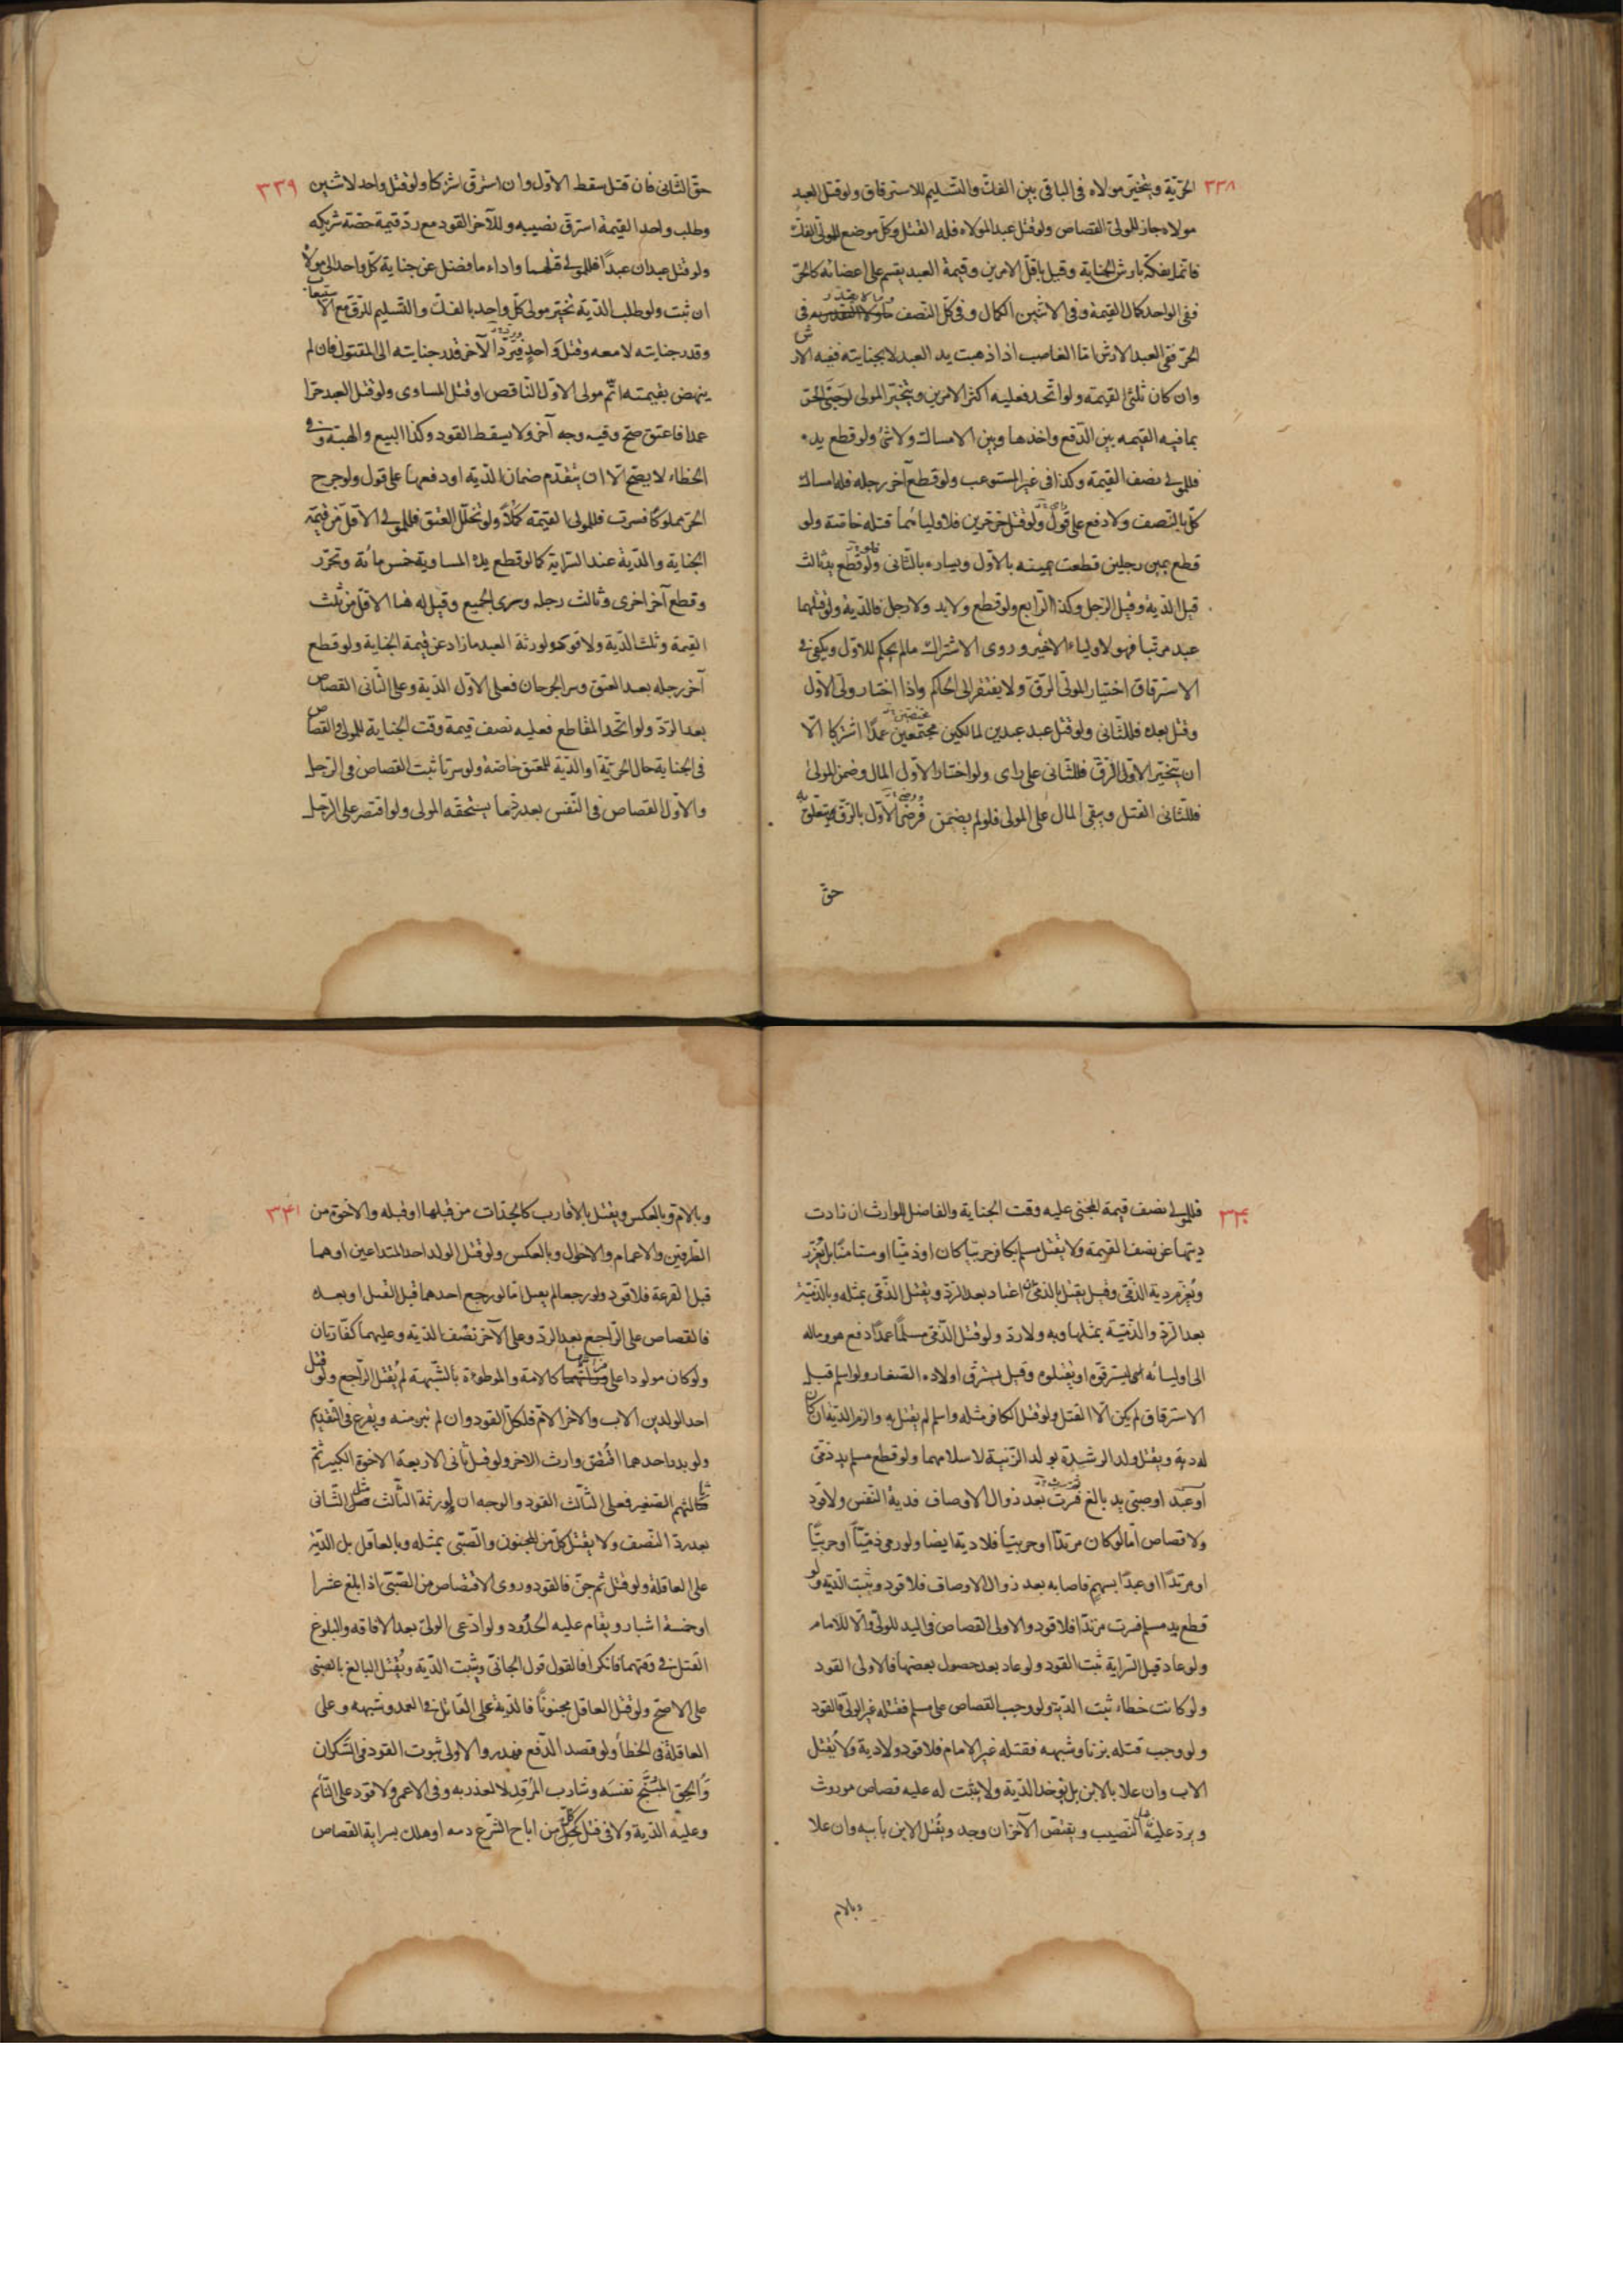 ٣٣٨
الحرّيّة ويتخيّر مولاه فى الباقى بين الفكّ والتّسليم للاسترقاق ولو قتل العبد
مولاه جاز للولىّ القصاص ولو قتل عبدا لمولاه فله القتل وكلّ موضع للمولى الفكّ
فانّما يفكّه بارش الجناية وقيل باقلّ الامرين وقيمة العبد يقسم على اعضائه كالحرّ
ففى الواحد كمال القيمة وفى الاثنين الكمال وفى كلّ النّصف وما لا تقدير فى
الحرّ ففى العبد الارش امّا الغاصب اذا ذهبت يد العبد لا بجنايته ففيه الارش
وان كان ثلثى القيمة ولو اتّحد فعليه اكثر الامرين ويتخيّر المولى لو جنى الحرّ
بما فيه القيمه بين الدّفع واخذها وبين الامساك ولا شئ ولو قطع يده
فللمولى نصف القيمة وكذا فى غير المستوعب ولو قطع آخر رجله فله امساك
كلّ بالنّصف ولا دفع على قول ولو قتل حرّ حرّين فلاوليائهما قتله خاصّة ولو
قطع يمين رجلين قطعت يمينه بالاوّل ويساره بالثّانى ولو قطع يد ثالث
قيل الدّية وقيل الرّجل وكذا الرّابع ولو قطع ولا يد ولا رجل فالدّية ولو قتلهما
عبد مرتّبا فهو لاولياء الاخير وروى الاشتراك ما لم يحكم للاوّل ويكفى فى
الاسترقاق اختيار الولىّ الرّقّ ولا يفتقر الى الحاكم واذا اختار ولىّ الاوّل
وقتل بعدك فللثّانى ولو قتل عبد عبدين لمالكين مجتمعين عمدًا اشتركا الّا
ان يتخيّر الاوّل الرّقّ فللثّانى على راى ولو اختار الاوّل المال وضمن المولى
فللثّانى القتل ويبقى المال على المولى فلو لم يضمن فرضى الاوّل بالرّقّ تعلّق به
حقّ
٣٣٩
حقّ الثّانى فان قتل سقط الاوّل وان استرقّ اشتركا ولو قتل واحد لاثنين
وطلب واحد القيمة استرقّ نصيبه وللآخر القود مع ردّ قيمة حصّة شريكه
ولو قتل عبدان عبدًا فللمولى قتلهما واداء ما فضل عن جناية كلّ واحد الى مولاه
ان ثبت ولو طلب الدّية تخيّر مولى كلّ واحد بالفكّ والتّسليم للرّقّ مع الاستيعاب
وقدر جنايته لا معه وقتل واحدٍ فيردّ الآخر قدر جنايته الى المقتول فان لم
ينهض بقيمته اتمّ مولى الاوّل النّاقص او قتل المساوى ولو قتل العبد حرّا
عمدا فاعتق صحّ وفيه وجه آخر ولا يسقط القود وكذا البيع والهبة وفى
الخطاء لا يصحّ الّا ان يتقدّم ضمان الدّية او دفعها على قول ولو جرح
الحرّ مملوكًا فسرت فللمولى القيمة كملًا ولو تخلّل العتق فللمولى الاقلّ من قيمة
الجناية والدّية عند السّراية كما لو قطع يد المساوية خمس مائة وتحرّر
وقطع آخر اخرى وثالث رجله وسرى الجميع وقيل له هنا الاقلّ من ثلث
القيمة وثلث الدّية ولا قود ولورثة العبد ما زاد عن قيمة الجناية ولو قطع
آخر رجله بعد العتق وسر الجرحان فعلى الاوّل الدّية وعلى الثّانى القصاص
بعد الرّدّ ولو اتّحد القاطع فعليه نصف قيمة وقت الجناية للمولى والقصاص
فى الجناية حال الحرّيّة او الدّية للمعتق خاصّة ولو سرتا ثبت القصاص فى الرّجل
والاوّل القصاص فى النّفس بعد ردّ ما يستحقّه المولى ولو اقتصر على الرّجل
٣٤٠
فللمولى نصف قيمة المجنى عليه وقت الجناية والفاضل للوارث ان زادت
ديتها عن نصف القيمة ولا يقتل مسلم بكافر حربيّا كان او ذمّيّا او مستامنًا بل يُعزّر
ويُغرم دية الذّمّى وقيل يقتل بالذّمّى ان اعتاد بعد الرّدّ ويقتل الذّمّى بمثله وبالذّميّة
بعد الرّدّ والذّميّة بمثلها وبه ولا ردّ ولو قتل الذّمّى مسلمًا عمدًا دفع هو وماله
الى اوليائه ليسترقّوه او يقتلوه وقيل يسترقّ اولاده الصّغار ولو اسلم قبل
الاسترقاق لم يكن الّا القتل ولو قتل الكافر مثله واسلم لم يقتل به والزم الدّية ان كان
له دية ويقتل ولد الرشدة بولد الزّنية لاسلامهما ولو قطع مسلم يد ذمّى
او عبد او صبى يد بالغ فسرت بعد زوال الاوصاف فدية النّفس ولا قود
ولا قصاص امّا لو كان مرتدّا او حربيّا فلا دية ايضا ولو رمى ذمّيّا او حربيّا
او مرتدّا او عبدًا بسهم فاصابه بعد زوال الاوصاف فلا قود وثبت الدّية ولو
قطع يد مسلم فسرت مرتدّا فلا قود والاولى القصاص فى اليد للولىّ والّا للامام
ولو عاد قبل السّراية ثبت القود ولو عاد بعد حصول بعضها فالاولى القود
ولو كانت خطاء ثبت الدّية ولو وجب القصاص على مسلم فقتله غير الولىّ فالقود
ولو وجب قتله بزنا وشبهه فقتله غير الامام فلا قود ولا دية ولا يُقتل
الاب وان علا بالابن بل يؤخذ الدّية ولا يثبت له عليه قصاص موروث
ويردّ عليه النّصيب ويقتصّ الآخر ان وجد ويُقتل الابن بابيه وان علا
وبالام
٣٤١
وبالامّ وبالعكس ويقتل بالاقارب كالجدّات من قبلها او قبله والاخوة من
الطّرفين والاعمام والاخوال وبالعكس ولو قتل الولد احد المتداعين او هما
قبل القرعة فلا قود ولو رجعا لم يقبل امّا لو رجع احدهما قبل القتل او بعده
فالقصاص على الرّاجع بعد الرّدّ وعلى الآخر نصف الدّية وعليهما كفّارتان
ولو كان مولودا على فراشهما كالامة والموطوءة بالشّبهة لم يُقتل الرّاجع ولو قتل
احد الولدين الاب والاخر الامّ فلكلّ القود وان لم تبن منه ويقرع فى التّقديم
ولو بدر احدهما اقتصّ وارث الاخر ولو قتل ثانى الاربعة الاخوة الكبير ثمّ
ثالثهم الصّغير فعلى الثّالث القود والوجه ان لورثة الثّالث قتل الثّانى
بعد ردّ النّصف ولا يقتل كلّ من المجنون والصّبى بمثله وبالعاقل بل الدّية
على العاقلة ولو قتل ثم جنّ فالقود وروى الاقتصاص من الصّبى اذا بلغ عشرا
او خمسة اشبار ويقام عليه الحدود ولو ادّعى الولىّ بعد الافاقه والبلوغ
القتل فى وقتهما فانكرا فالقول قول الجانى ويثبت الدّية ويُقتل البالغ بالصبى
على الاصحّ ولو قتل العاقل مجنونًا فالدّية على القاتل فى العمد وشبهه وعلى
العاقلة فى الخطأ ولو قصد الدّفع فهدر والاولى ثبوت القود فى السّكران
وَاُلحق المُبَنّج نفسَه وشارب المُرْقد لا لعذر به وفى الاعمى ولا قود على النّائم
وعليه الدّية ولا فى قتل كلّ من اباح الشّرع دمه او هلك بسراية القصاص